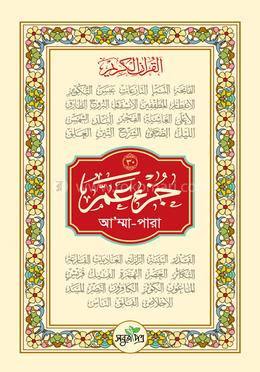 القرآن الكريم
الفاتحة النبأ النازعات عبس التكوير
الانفطار المطففين الانشقاق البروج الطارق
الأعلى الغاشية الفجر البلد الشمس
الليل الضحى الشرح التين العلق
٣٠
جزء عم
আ'ম্মা-পারা
القدر البينة الزلزلة العاديات القارعة
التكاثر العصر الهمزة الفيل قريش
الماعون الكوثر الكافرون النصر المسد
الإخلاص الفلق الناس
সবুজপত্র